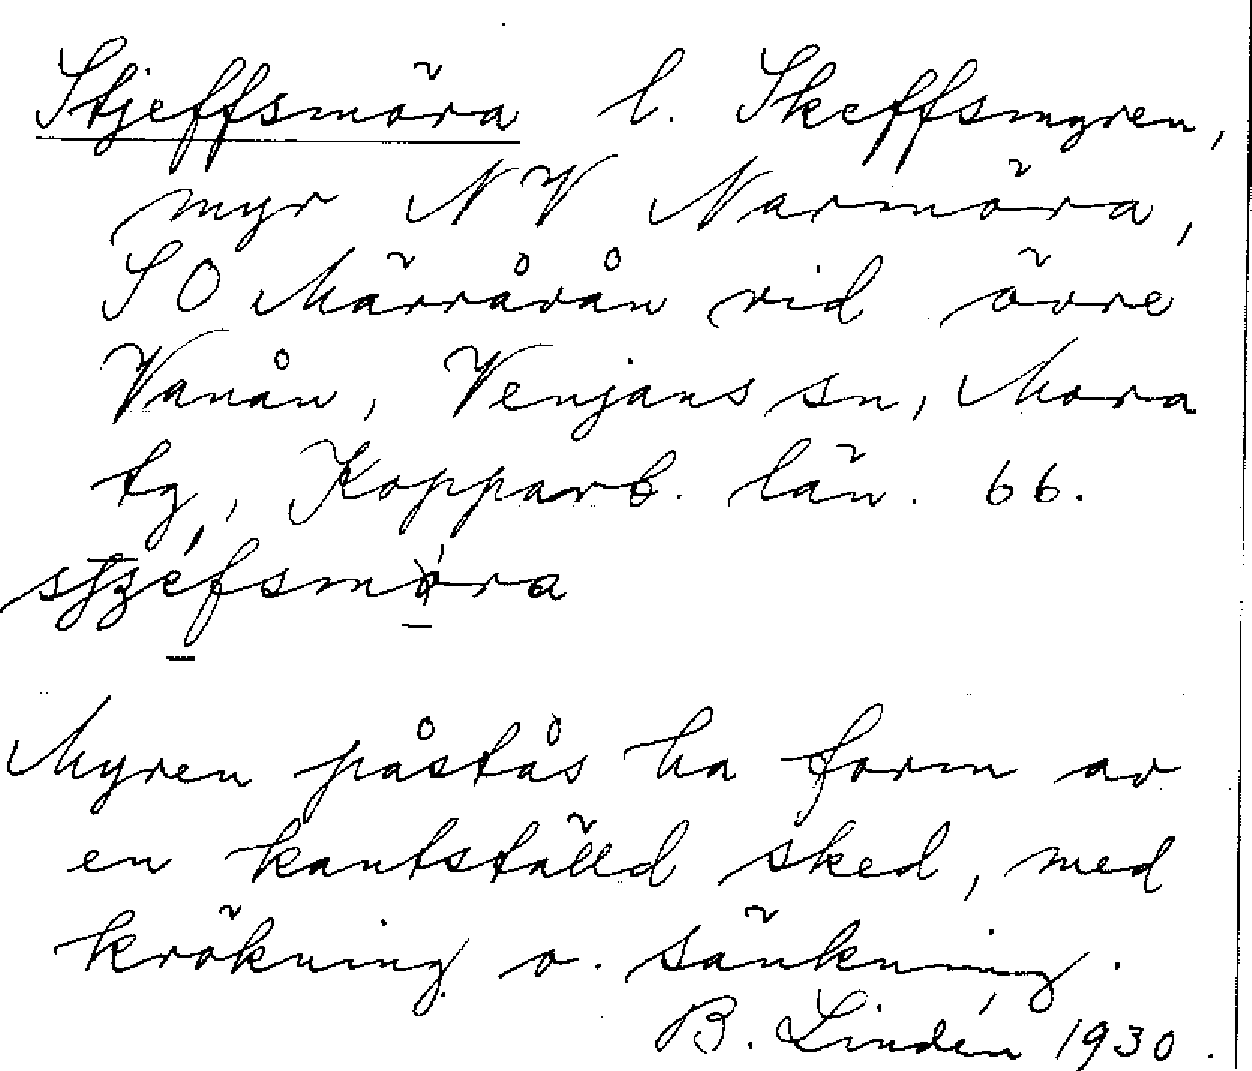 Stjeffsmöra l. Skeffsmyren,
myr NV Narmöra,
SO Märråvån vid övre
Vanån, Venjans sn, Mora
tg, Kopparb. län. 66.
Myren påstås ha form av
en kantställd sked, med
krökning o. sänkning.
B. Lindén 1930.